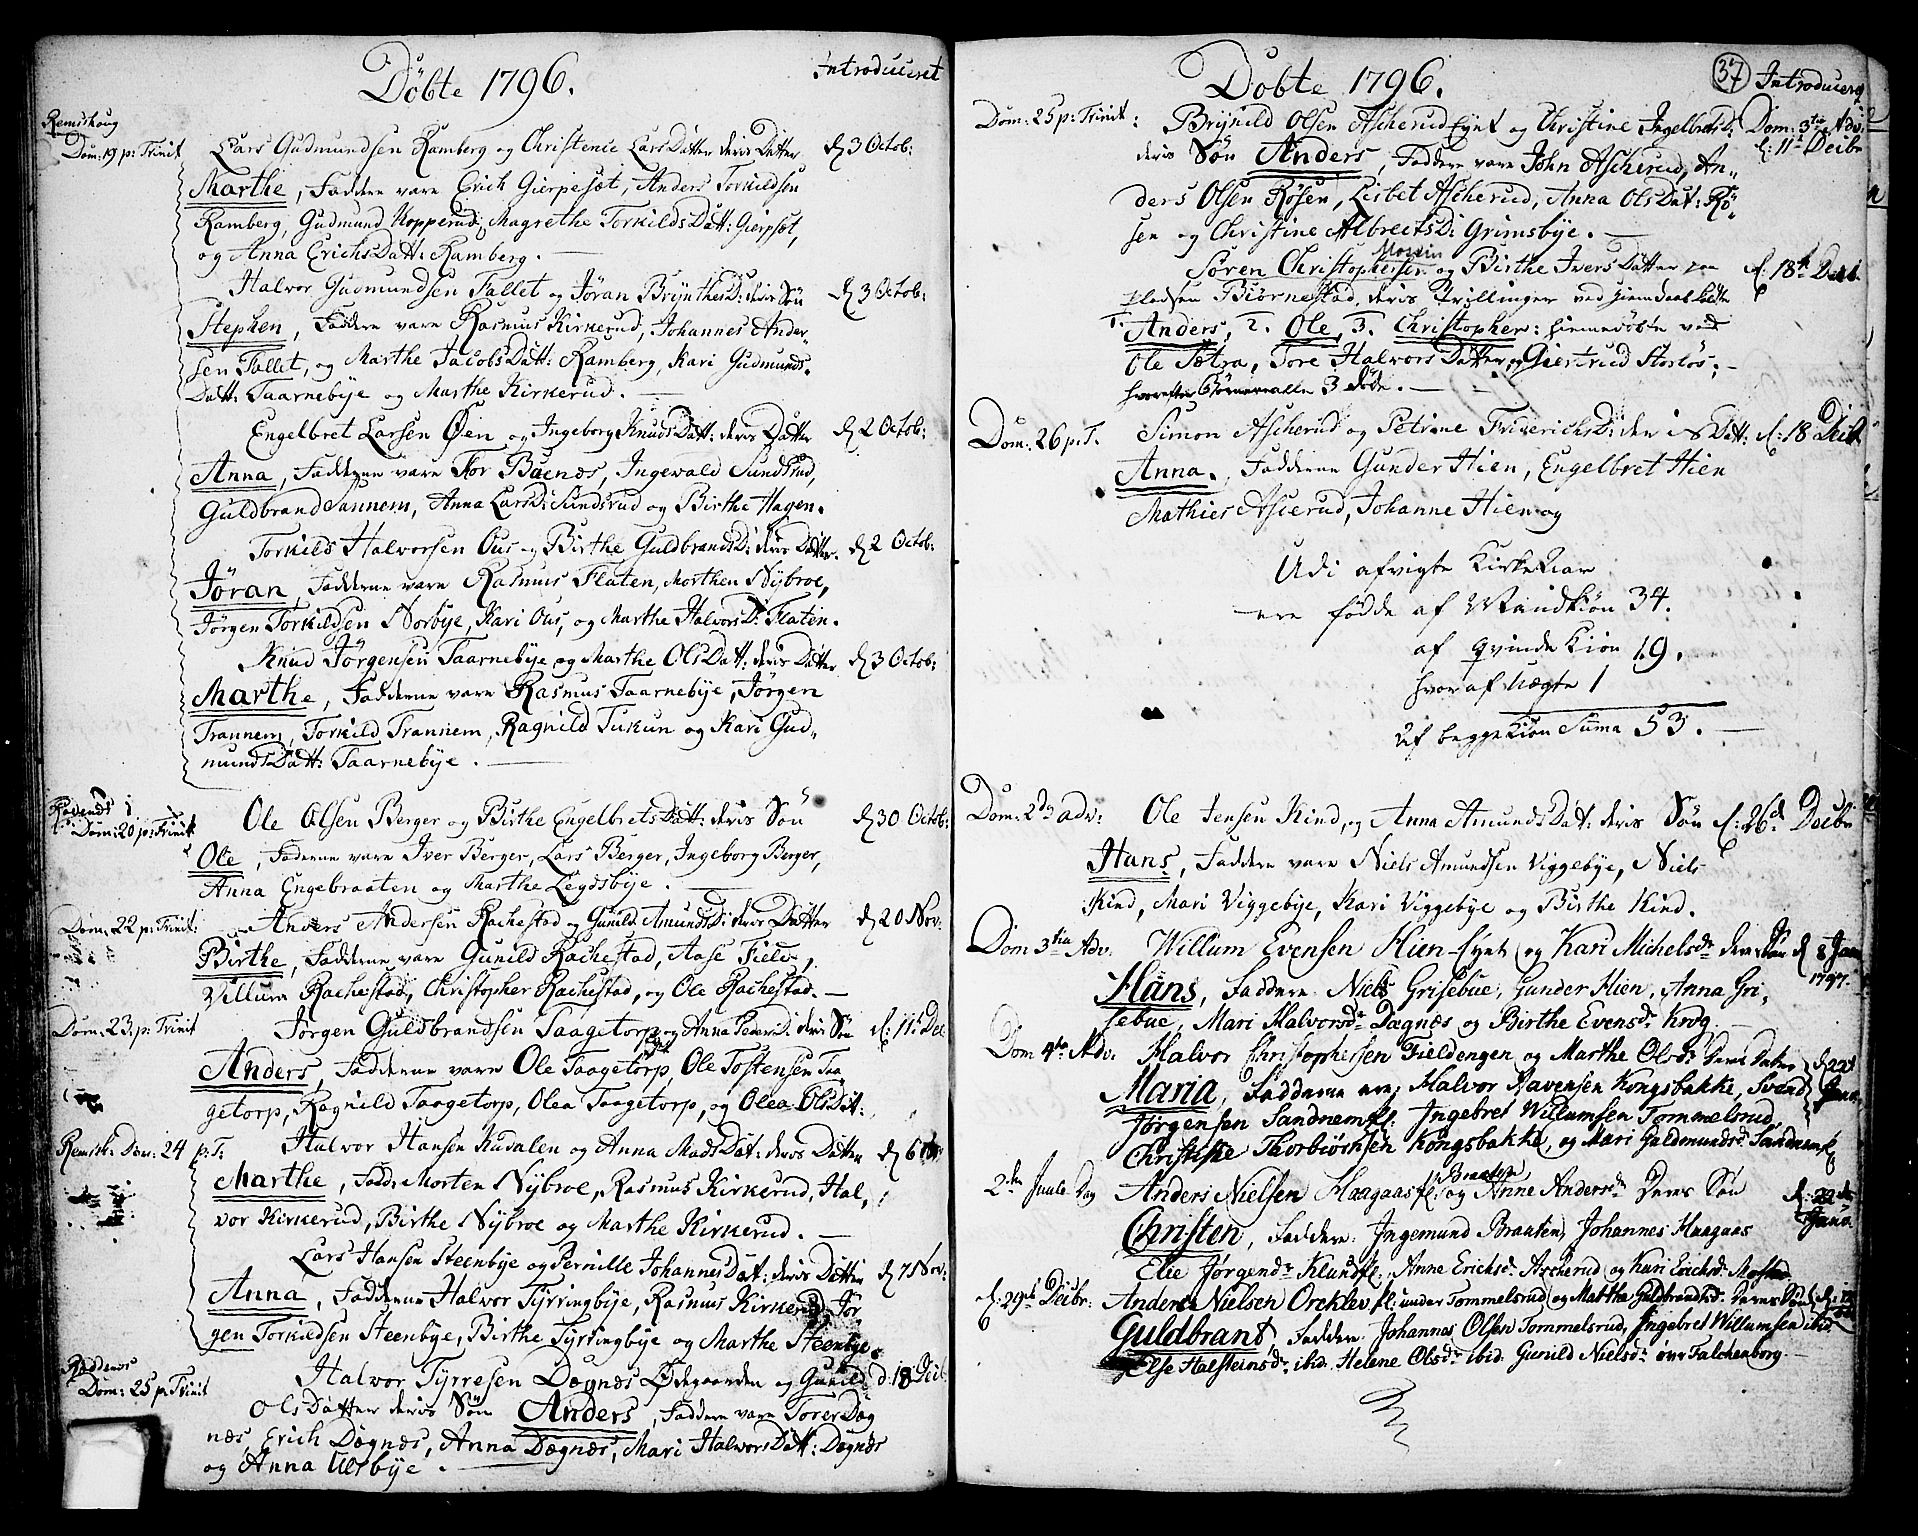 Döbte 1796.
Introduceret
Remskoug
Dom: 19 p: Trinit
Lars Gudmundsen Ramberg og Christence LarsDatter deris Datter
d 3 Octob:
Marthe, Faddere vare Erich Gierpesæt, Anders Torkildsen
Ramberg, Gudmund Kopperud, Magrethe TorkildsDatt: Gierpsæt,
og Anna ErichsDatt: Ramberg.
Halvor Gudmundsen Fallet og Jöran BrynthesD: deris Sön
d 3 Octob:
Stephen, Faddere vare Rasmus Kirkerud, Johannes Ander-
sen Fallet, og Marthe JacobsDatt: Ramberg, Kari Gudmunds-
Datt: Taarnebÿe og Marthe Kirkerud.
Engelbret Larsen Öen og Ingeborg KnudsDatt: deris Datter
d 2 Octob:
Anna, Fadderne vare Tor Buenæs, Ingewald Sundsrud,
Guldbrand Sannem, Anna LarsD: Sundsrud og Birthe Hagen.
Torkild Halvorsen Ous og Birthe GuldbrandsD: deris Datter.
d 2 Octob:
Jöran, Fadderne vare Rasmus Flaten, Morthen Nÿbroe,
Jörgen Torkildsen Norbÿe, Kari Ous, og Marthe HalvorsD: Flaten.
Knud Jörgensen Taarnebÿe og Marthe OlsDatt: deris Datter
d 3 Octob:
Marthe, Fadderne vare Rasmus Taarnebÿe, Jörgen
Trannem, Torkild Trannem, Ragnild Tukun og Kari Gud-
mundsDatt: Taarnebÿe.
Dom: 20 p: Trinit
Ole Olsen Berger og Birthe EngelbretsDatt: deris Sön
d 30 Octob:
Ole, Fadderne vare Iver Berger, Lars Berger, Ingeborg Berger,
Anna Engebraaten og Marthe Leydsbÿe.
Dom: 22 p: Trinit:
Anders Andersen Rachestad og Gunild AmundsD: deris Datter
d 20 Nov:
Birthe, Fadderne vare Gunild Rachestad, Aase Field,
Villum Rachestad, Christopher Rachestad, og Ole Rachestad.
Dom: 23 p: Trinit
Jörgen Guldbrandsen Taagetorp og Anna PedersD: deris Sön
d: 11t Dec
Anders, Fadderne vare Ole Taagetorp, Ole Tostensen Taa
getorp, Ragnild Taagetorp, Olea Taagetorp, og Olea OlsDat:
Remsk: Dom: 24 p: T.
Halvor Hansen Kudalen og Anna MadsDat: deris Datter
d 6
Marthe, Fadde Morten Nÿbroe, Rasmus Kirkerud, Hal-
vor Kirkerud, Birthe Nÿbroe og Marthe Kirkerud.
Lars Hansen Steenbÿe og Pernille JohannesDat: deris Datter
d 7 Nov:
Anna, Fadderne Halvor Tÿrringbÿe, Rasmus Kirkerud, Jör
gen Torkildsen Steenbÿe, Birthe Tÿrringbÿe og Marthe Steenbÿe.
Röddenes
Dom: 25 p: Trinit
Halvor Tÿrresen Dægnæs Ödegaarden og Gunild
d: 18 Decb
OlsDatter deris Sön Anders, Faddere vare Torer Dæg
næs, Erich Dægnæs, Anna Dægnæs, Mari HalvorsDatt: Dægnæs
og Anna Ulsbÿe.
37
Döbte 1796.
Introducerg
Dom: 25 p: Trinit:
Brÿnild Olsen Ascherud Eÿet og Christine IngelbretsD:
Dom: 3tie Adv:
deris Sön Anders, Faddere vare John Ascherud, An-
d: 11te Decbr
ders Olsen Rösen, Lisbet Ascherud, Anna OlsDat: Rö-
sen og Christine AlbrectsD: Grimsbÿe.
Mosvin
Sören Christophersen og Birthe IversDatter paa
d: 18de Decb
Pladsen Biörnestad, deris Trillinger ved hiemdaab kaldte
1. Anders, 2. Ole, 3. Christopher: hiemedöbte ved
Ole Sætra, Tore HalvorsDatter, og Giertrud Storlös,
hvorefter Börnene alle 3 döde.
Dom: 26 p: T.
Simon Ascherud og Petrine FriderichsD: deris Datt:
d: 18 Decb
Anna. Fadderne Gunder Hien, Engelbret Hien
Mathies Ascerud, Johanne Hien og
Udi afvigte KirkeAar
ere födde af Mandkiön 34.
af qvindeKiön 19.
hvoraf Uægte 1
Af begge Kiön Suma 53.
Dom: 2den adv:
Ole Jensen Kind, og Anna AmundsDat: deris Sön
d: 26d. Decbr
Hans, Faddere vare Niels Amundsen Viggebÿe, Niels
Kind, Mari Viggebÿe, Kari Viggebÿe og Birthe Kind.
Dom 3tia Adv.
Willum Evensen Hien-Eÿet og Kari Michelsdr deres Sön
d 8 Jan
1797.
Hans, Faddere Niels Grisebue, Gunder Hien, Anna Gri-
sebue, Mari Halvorsdr Dægnæs og Birthe Evensdr Krog
Dom 4ta Adv.
Halvor Christophersen Fieldengen og Marthe Olsdr Deres Datter
d 22d
Maria, Fadderne ere, Halvor Havensen Kongsbakke, Svend
Janu.
Jörgensen Sandnem fl. Ingebret Willumsen Tommelsrud,
Christine Thorbiörnsen Kongsbakke, og Mari Guldmundsdr Sandnem
2den Juule-Dag
Braaten
Anders Nielsen Haagaas fl. og Anne Andersdr Deres Sön
d: 22de
Janu.
Christen, Faddere: Ingemund Braaten, Johannes Haagaas
Elie Jörgensdr Klund fl. Anne Ericksdr Ascherud og Kari Ericksdr
d: 29de Decbr.
Anders Nielsen Oreklev fl: under Tommelsrud og Martha Guldbrandsdr Deres Sön
Guldbrant, Faddere: Johannes Olsen Tommelsrud, Ingebret Willumsen ibid.
Else Halsteinsdr ibid. Helene Olsdr ibid. Gunild Nielsdr övre Falchenborg